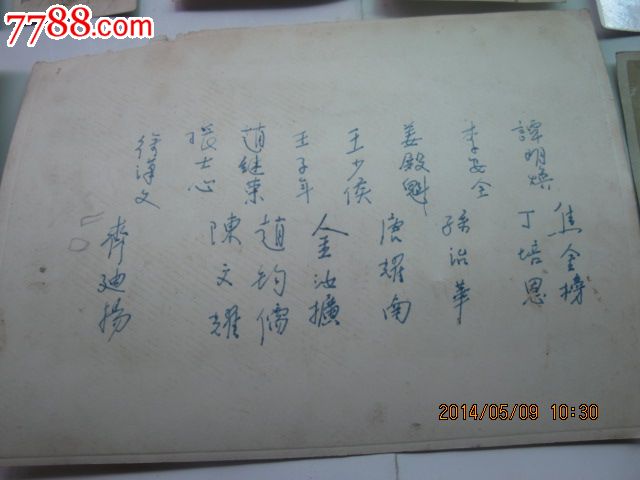 7788.com
譚明煥
李安全
姜殿魁
王少侯
王子年
趙继宋
張士心
徐漢文
焦金榜
丁培恩
孫治華
唐耀南
金汝擴
趙鈞儒
陳文耀
齊廸揚
2014/05/09 10:30